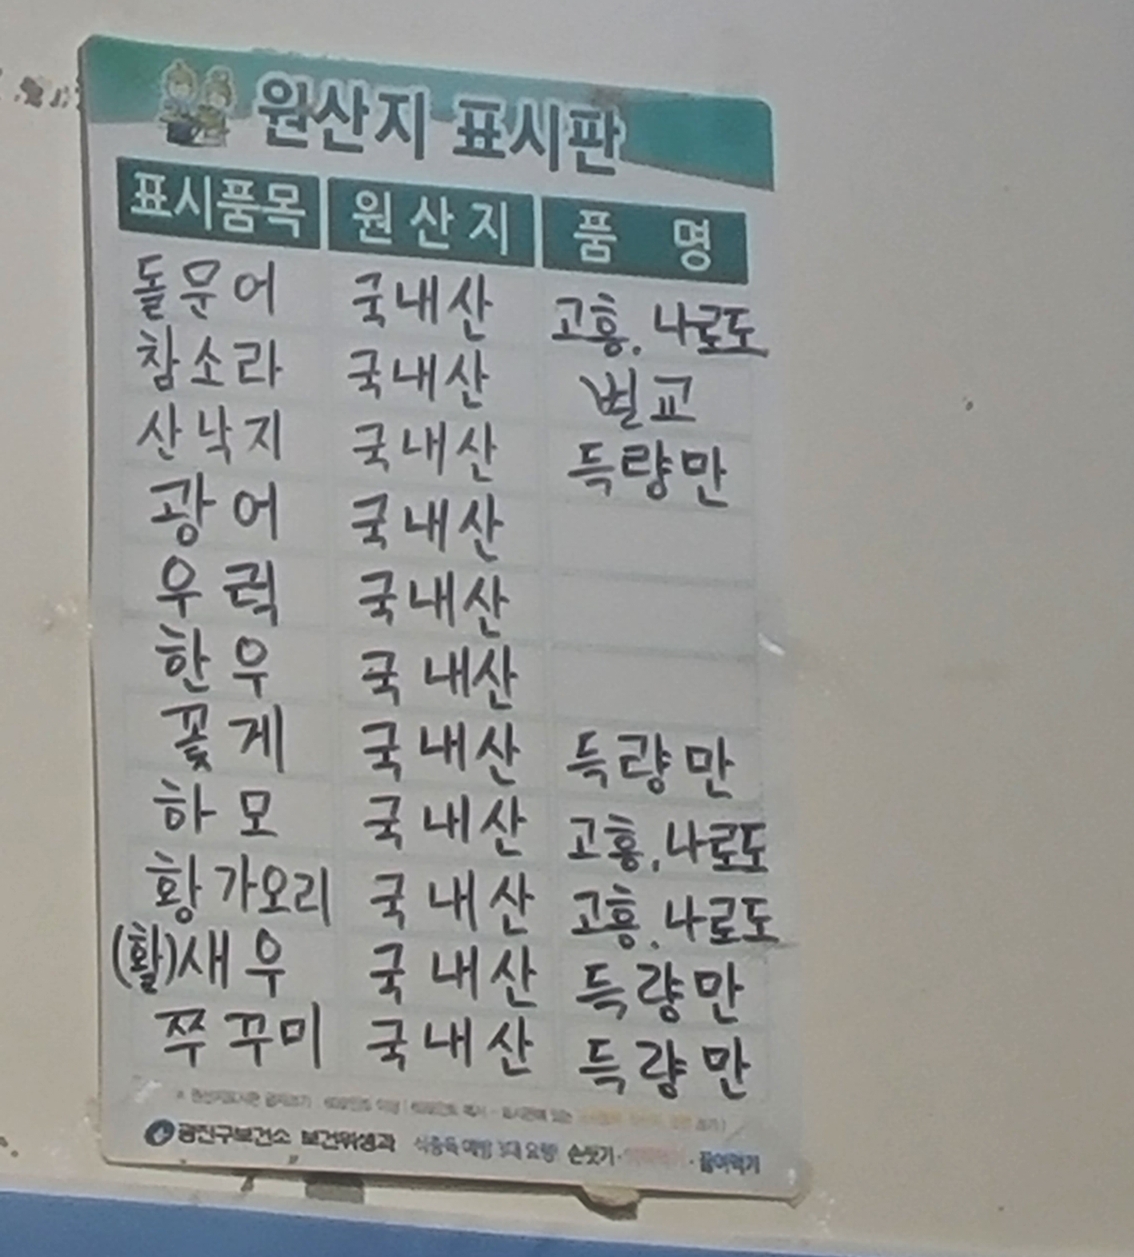 원산지 표시판
표시품목 원산지 품 명
돌문어 국내산 고흥. 나로도
참소라 국내산 벌교
산낙지 국내산 득량만
광어 국내산
우럭 국내산
한우 국내산
꽃게 국내산 득량만
하모 국내산 고흥. 나로도
황가오리 국내산 고흥. 나로도
(활)새우 국내산 득량만
쭈꾸미 국내산 득량만
광진구보건소 보건위생과 식중독 예방 3대 요령! 손씻기· · 끓여먹기